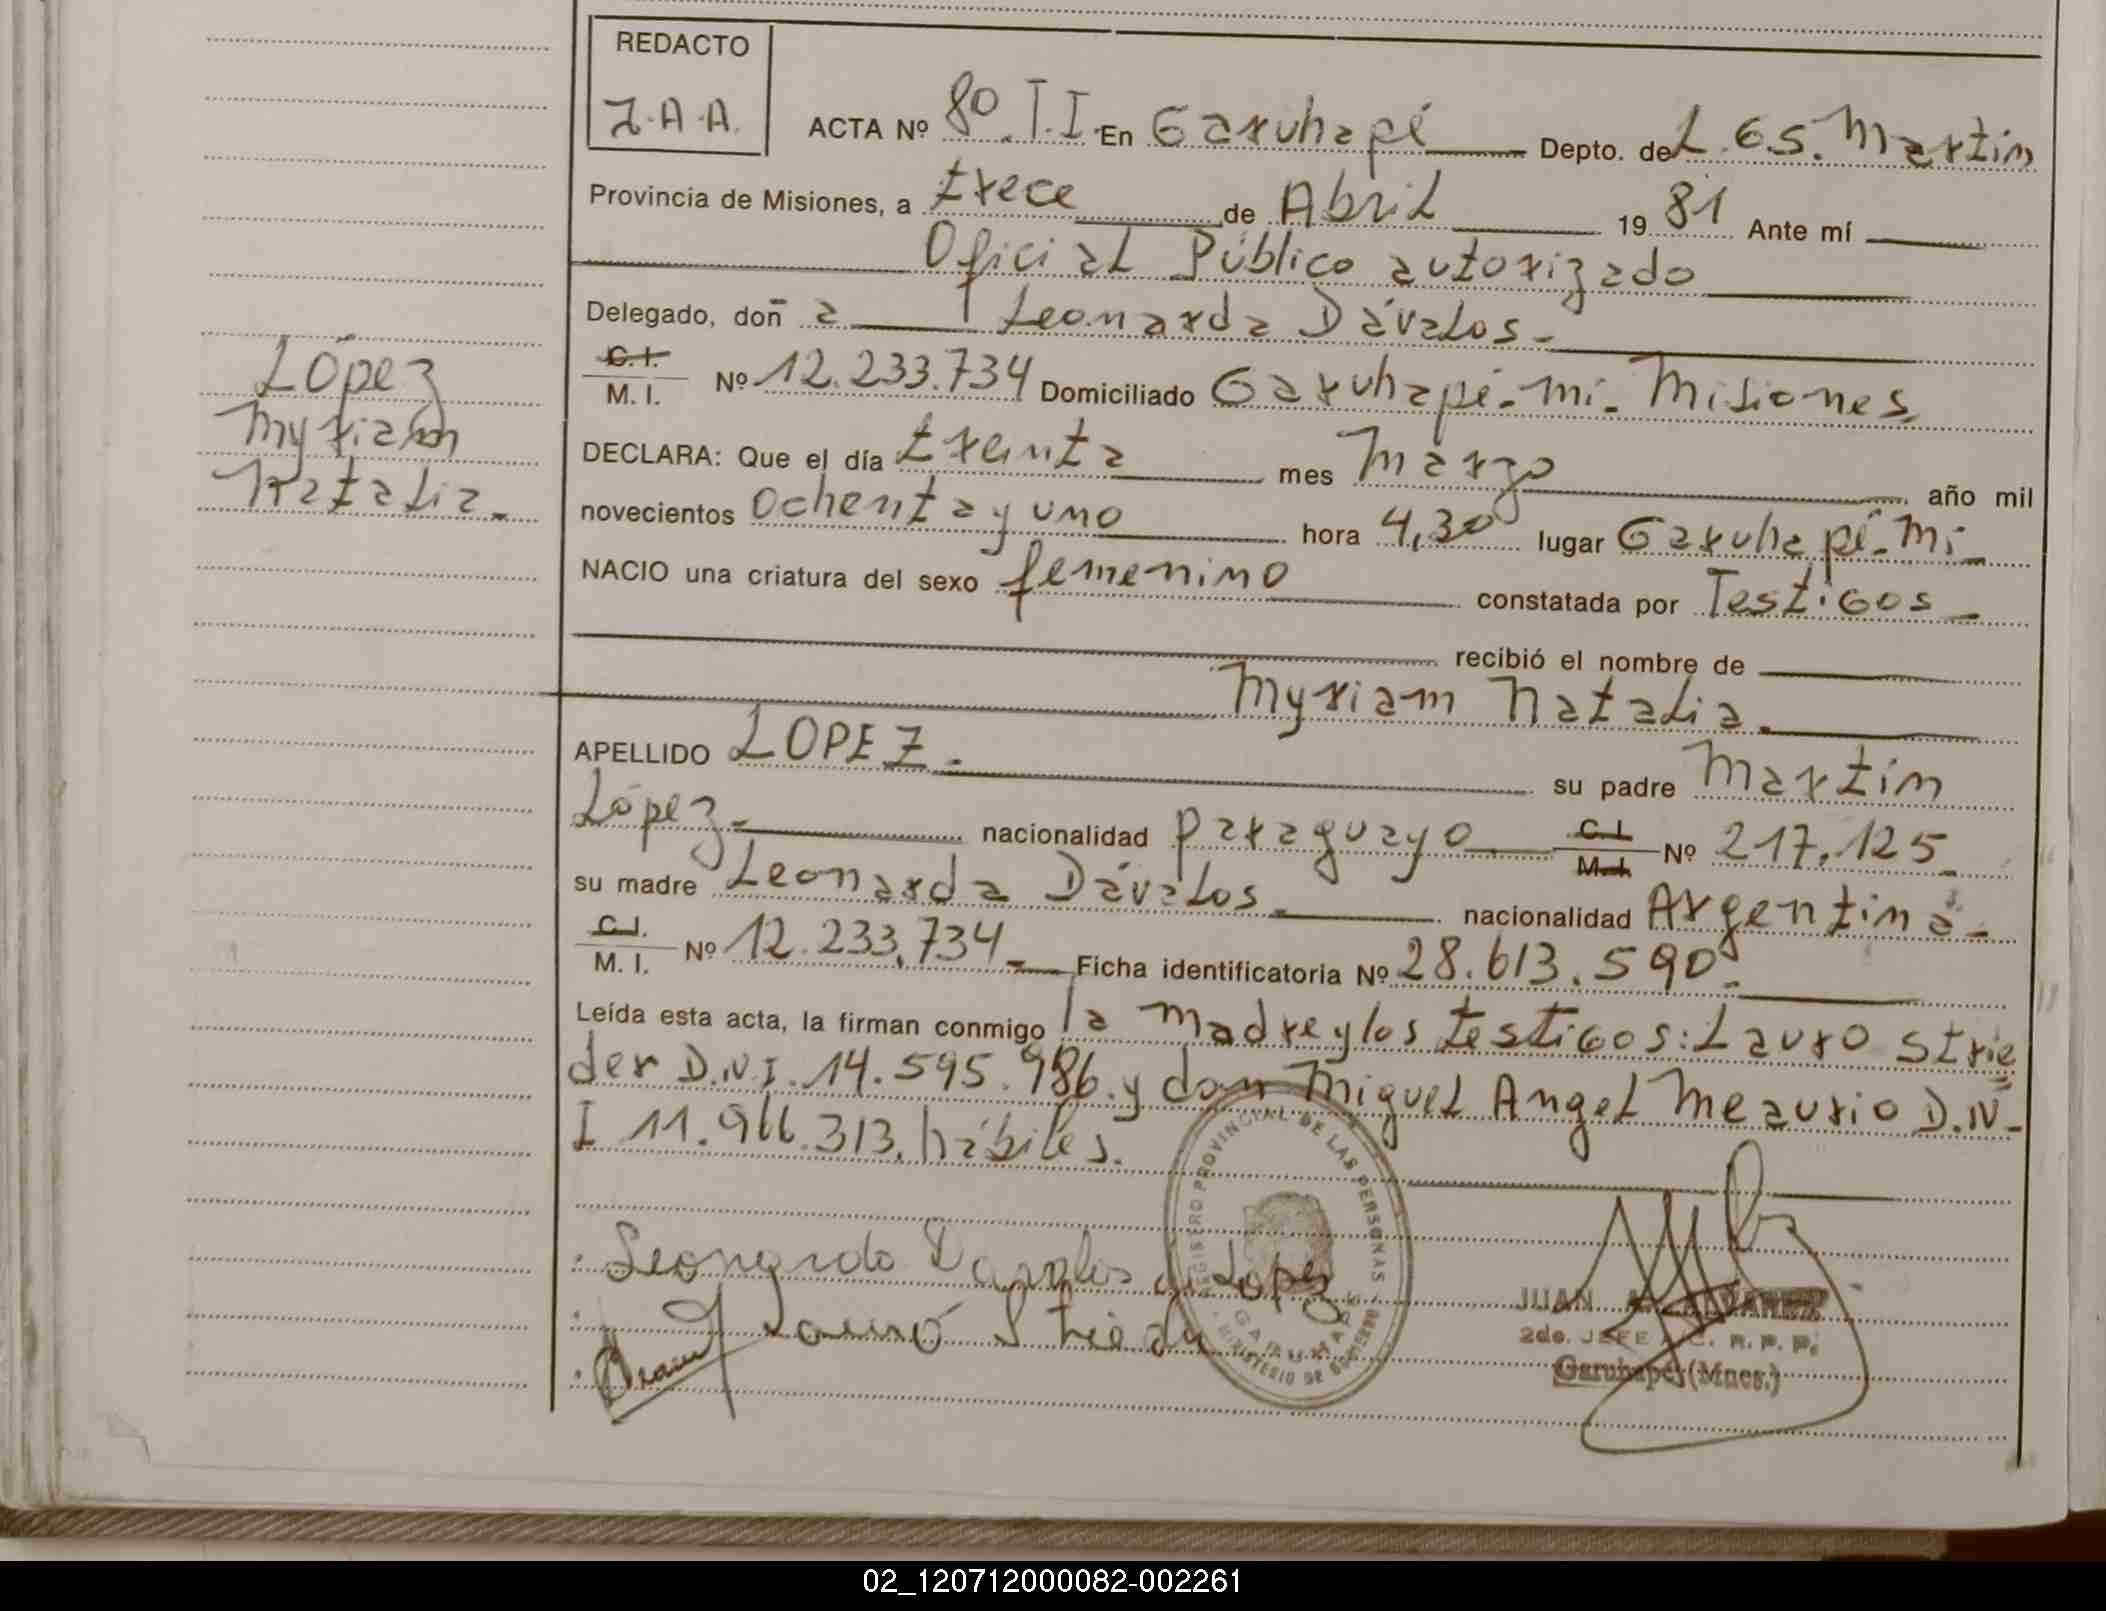 REDACTO
J.A.A.
ACTA Nº 80.T.I. En Garuhapé Depto. de L.GS.Martín
Provincia de Misiones, a trece de Abril 1981 Ante mí
Oficial Público autorizado
Delegado, don̄ a Leonarda Dávalos.
C.I.
M.I. Nº 12.233.734 Domiciliado Garuhapé-mi- Misiones
DECLARA: Que el día treinta mes Marzo año mil
novecientos ochenta y uno hora 4,30 lugar Garuhapé-Mi-
NACIO una criatura del sexo femenino constatada por Testigos
recibió el nombre de
Myriam Natalia.
APELLIDO LOPEZ. su padre Martín
López nacionalidad paraguayo C.I. M.I. Nº 217.125
su madre Leonarda Dávalos. nacionalidad Argentina.
C.I.
M.I. Nº 12.233.734 Ficha identificatoria Nº 28.613.590.
Leída esta acta, la firman conmigo la madre y los testigos: Lauro Strie
der D.N.I. 14.595.986. y don Miguel Angel Meaurio D.N-
I 11.966.313. hábiles.
López
Myriam
Natalia.
Leonarda Davalos de Lopez
Lauro Strieder
REGISTRO PROVINCIAL DE LAS PERSONAS
GARUHAPE
MINISTERIO DE GOBIERNO
JUAN A. ALVAREZ
2do. JEFE R. P. P.
Garuhapé (Mnes.)
02_120712000082-002261